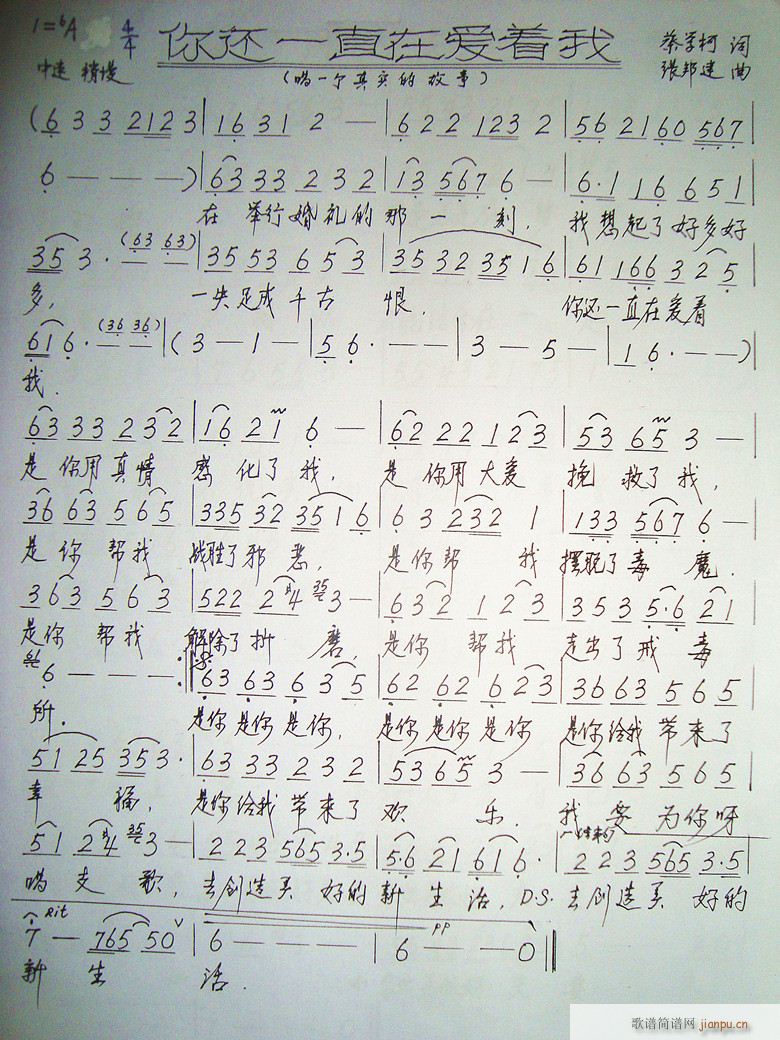 1=♭A 4/4 你还一直在爱着我 蔡学柯 词
中速 稍慢 (唱一个真实的故事) 张邦建 曲
(6 3 3 2123 | 16 31 2 — | 6 2 2 123 2 | 56 2160 567 |
6 — — — ) | 63 33 2 3 2 | 13 567 6 — | 6·1 16 6 5 1 |
在 举行婚礼的那一刻, 我想起了好多好
35 3· (63 63) | 35 53 6 5 3 | 35 32 35 1 6 | 61 166 3 2 5 |
多, 一失足成千古恨, 你还一直在爱着
61 6· (36 36) | (3 — 1 — | 5 6· — — | 3 — 5 — | 1 6· — — )
我.
63 33 2 3 2 | 16 21 6 — | 62 22 1 2 3 | 53 65 3 — |
是你用真情 感化了我, 是你用大爱 挽救了我,
36 63 5 6 5 | 335 32 35 1 6 | 6 3 232 1 | 133 567 6 — |
是你 帮我 战胜了邪恶, 是你帮 我 摆脱了毒魔.
3 63 5 6 3 | 522 2 4 3 — | 6 3 2 1 2 3 | 3 5 3 5·6 21 |
是你 帮我 解除了折磨, 是你 帮我 走出了戒毒
6 — — — :| 63 63 6 3 5 | 62 62 6 2 3 | 36 63 5 6 5 |
所. 是你是你是你, 是你是你是你 是你给我带来了
51 25 353· | 63 33 2 3 2 | 53 65 3 — | 36 63 5 6 5 |
幸福, 是你给我带来了 欢乐. 我要为你呀
51 2 4 3 — | 2 2 3 565 3·5 | 5·6 21 61 6· | 2 2 3 565 3·5 |
唱支歌, 去创造美好的新生活, D.S. 去创造美好的
Rit
7 — 765 50 | 6 — — — | 6 — — 0 ‖
pp
新生 活.
歌谱简谱网 jianpu.cn